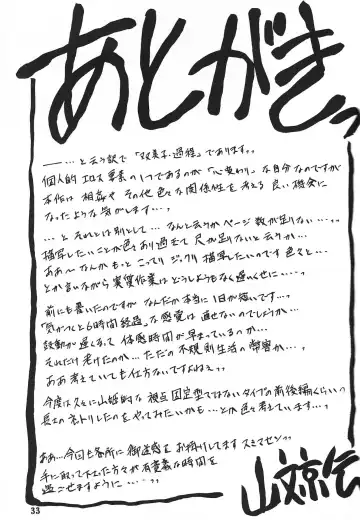 あとがきっ
――…と云う訳で「双美子・過程」であります。
個人的エロス要素の1つであるのが「心変わり」な自分なのですが
本作は 相姦や その他色々な関係性を考える 良い機会に
なったような気がします…。
…と それとは別として… なんと云うかページ数が足りない…。
描写したいことが色々あり過ぎて 尺が足りないと云うか…
ああ〜なんかもっと こってり ジックリ描写したいのです 色々と…
とか言いながら 実質作業はどうしようもなく遅いくせに…。
前にも書いたのですが なんだか本当に 1日が短いです…。
「気がつくと6時間経過」な感覚は 遠くないのでしょうか…
鼓動が遅くなって 体感時間が早まっているのか…
それだけ老けたのか… ただの不規則生活の弊害か…。
ああ考えていても仕方ないですよねぇ。
今度は久々に山姫的な視点固定型ではないタイプの前後編くらいの
長さのネトリしたのを やってみたいかも…とか色々考えています…。
ああ…今回も各所に御迷惑をお掛けしてます スミマセン。
手に取って下さった方々が有意義な時間を
過ごせますように…。
山文京伝
33